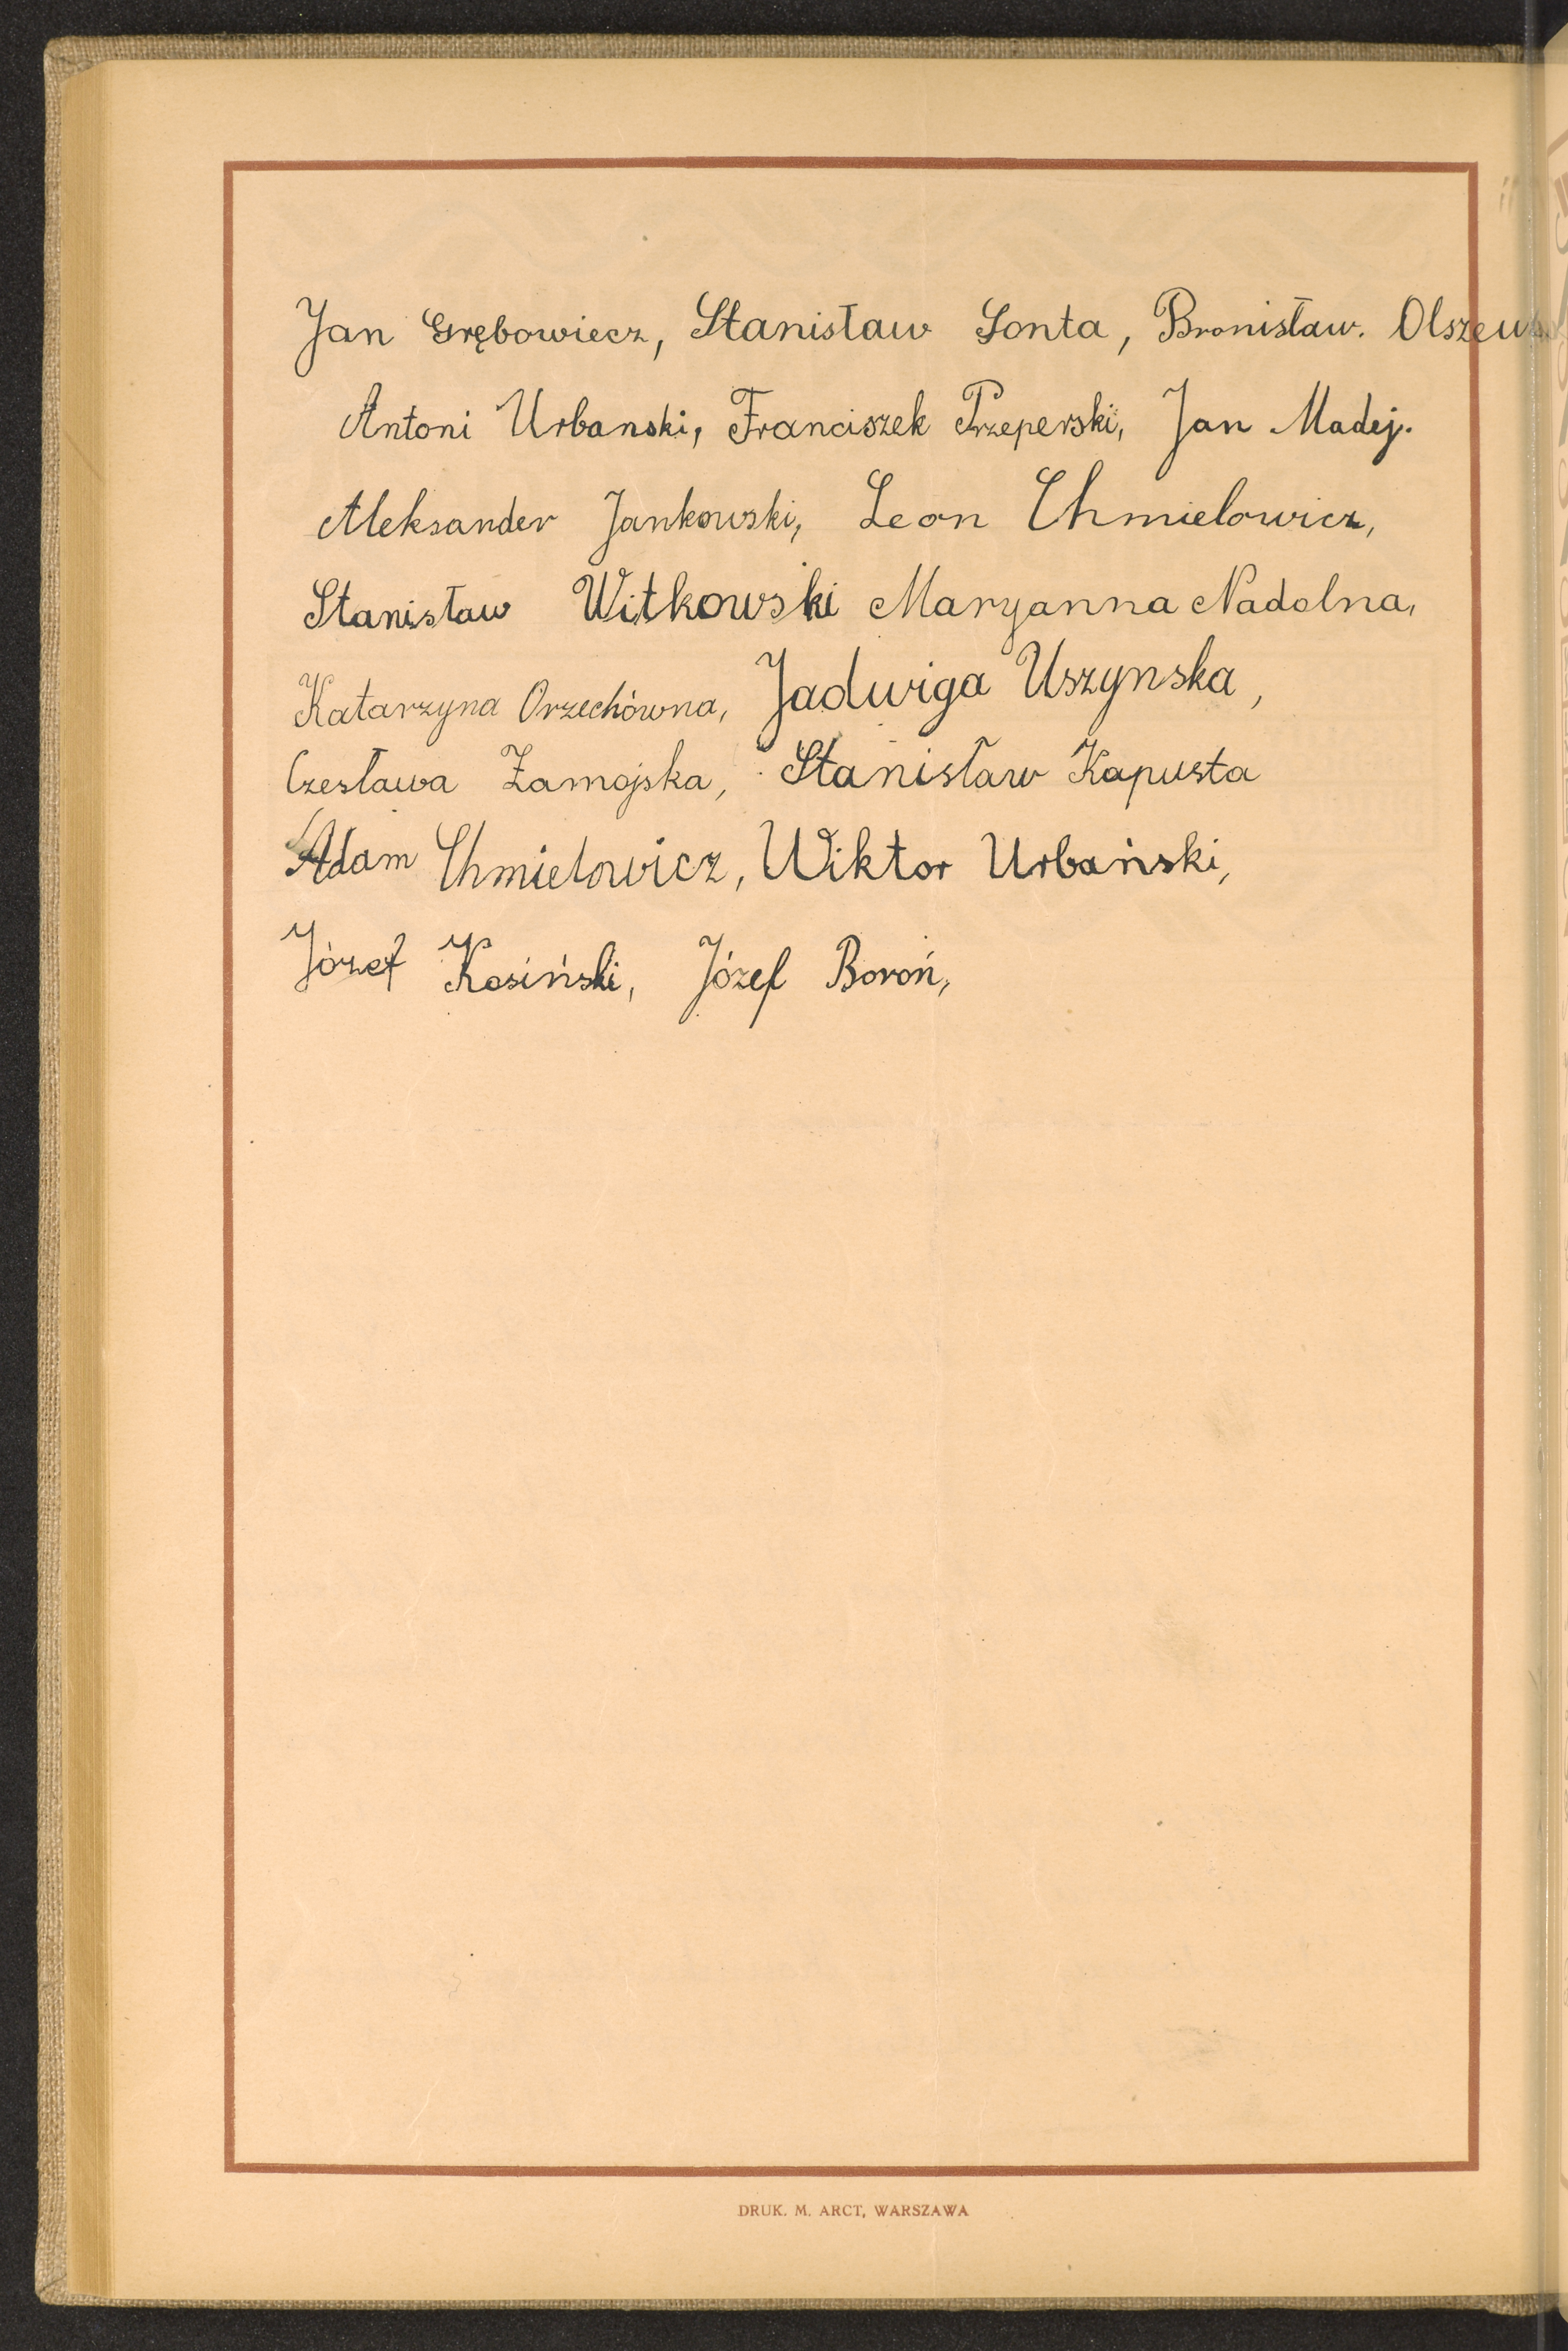 Jan Grębowiecz, Stanisław Sonta, Bronisław. Olszews
Antoni Urbanski, Franciszek Przeperski, Jan Madej.
Aleksander Jankowski, Leon Chmielowicz,
Stanisław Witkowski Maryanna Nadolna,
Katarzyna Orzechówna, Jadwiga Uszynska,
Czesława Zamojska, Stanisław Kapusta
Adam Chmielowicz, Wiktor Urbański,
Józef Kosiński, Józef Boroń,
DRUK. M. ARCT, WARSZAWA